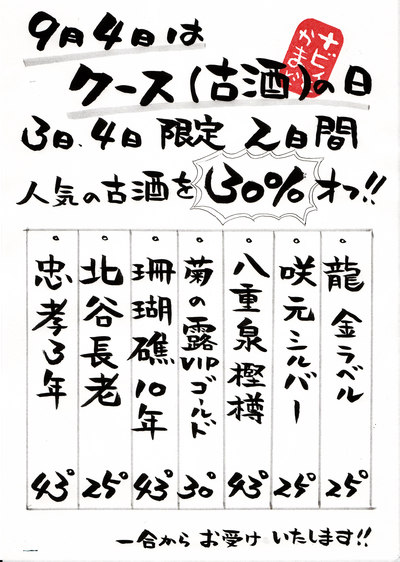 9月4日は
ナビィ
かまど
クース(古酒)の日
3日、4日 限定 2日間
人気の古酒を30%オフ!!
龍 金ラベル 25°
咲元シルバー 25°
八重泉樫樽 43°
菊の露VIPゴールド 30°
珊瑚礁10年 43°
北谷長老 25°
忠孝3年 43°
一合から お受け いたします!!